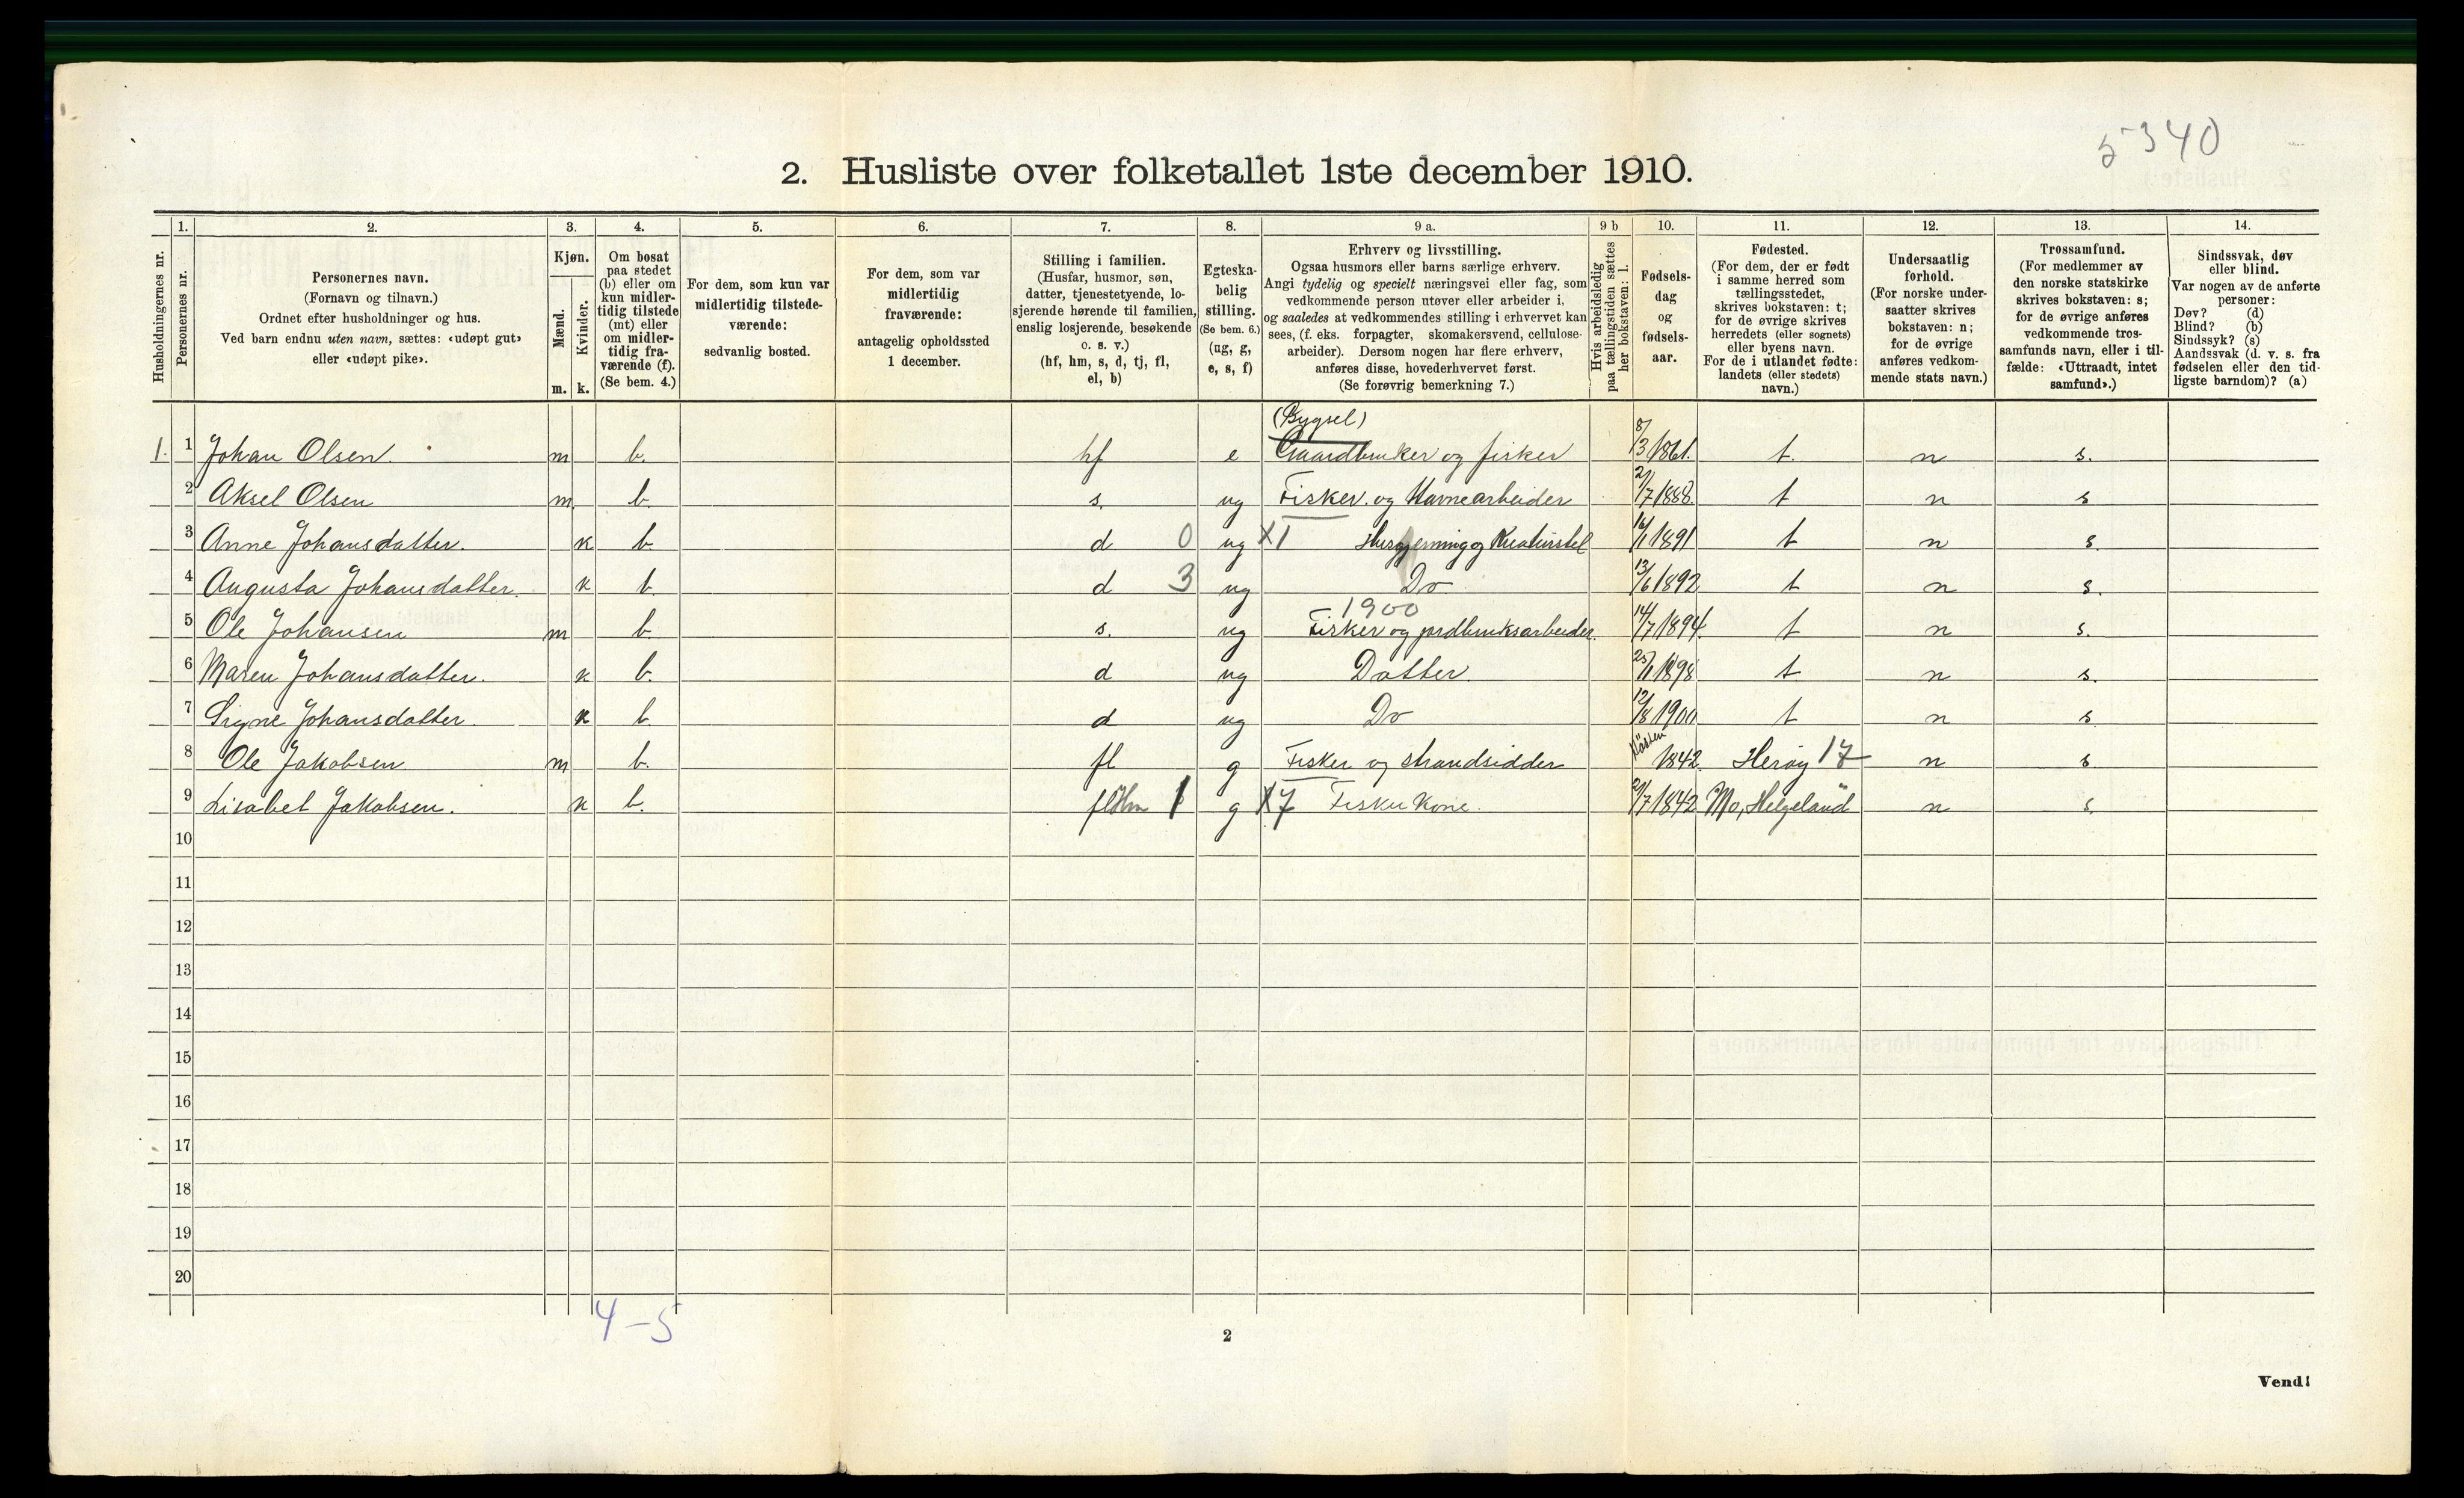 5340
2. Husliste over folketallet 1ste december 1910.
1. 2. 3. 4. 5. 6. 7. 8. 9 a. 9 b 10. 11. 12. 13. 14.
Husholdningernes nr.
Personernes nr.
Personernes navn.
(Fornavn og tilnavn.)
Ordnet efter husholdninger og hus.
Ved barn endnu uten navn, sættes: «udøpt gut»
eller «udøpt pike».
Kjøn.
Mænd.
Kvinder.
m. k.
Om bosat
paa stedet
(b) eller om
kun midler-
tidig tilstede
(mt) eller
om midler-
tidig fra-
værende (f).
(Se bem. 4.)
For dem, som kun var
midlertidig tilstede-
værende:
sedvanlig bosted.
For dem, som var
midlertidig
fraværende:
antagelig opholdssted
1 december.
Stilling i familien.
(Husfar, husmor, søn,
datter, tjenestetyende, lo-
sjerende hørende til familien,
enslig losjerende, besøkende
o. s. v.)
(hf, hm, s, d, tj, fl,
el, b)
Egteska-
belig
stilling.
(Se bem. 6.)
(ug, g,
e, s, f)
Erhverv og livsstilling.
Ogsaa husmors eller barns særlige erhverv.
Angi tydelig og specielt næringsvei eller fag, som
vedkommende person utøver eller arbeider i,
og saaledes at vedkommendes stilling i erhvervet kan
sees, (f. eks. forpagter, skomakersvend, cellulose-
arbeider). Dersom nogen har flere erhverv,
anføres disse, hovederhvervet først.
(Se forøvrig bemerkning 7.)
Hvis arbeidsledig
paa tællingstiden sættes
her bokstaven: l.
Fødsels-
dag
og
fødsels-
aar.
Fødested.
(For dem, der er født
i samme herred som
tællingsstedet,
skrives bokstaven: t;
for de øvrige skrives
herredets (eller sognets)
eller byens navn.
For de i utlandet fødte:
landets (eller stedets)
navn.)
Undersaatlig
forhold.
(For norske under-
saatter skrives
bokstaven: n;
for de øvrige
anføres vedkom-
mende stats navn.)
Trossamfund.
(For medlemmer av
den norske statskirke
skrives bokstaven: s;
for de øvrige anføres
vedkommende tros-
samfunds navn, eller i til-
fælde: «Uttraadt, intet
samfund».)
Sindssvak, døv
eller blind.
Var nogen av de anførte
personer:
Døv? (d)
Blind? (b)
Sindssyk? (s)
Aandssvak (d. v. s. fra
fødselen eller den tid-
ligste barndom)? (a)
(Bygsel)
1. 1 Johan Olsen. m b. hf e Gaardbruker og fisker 8/3 1861. t. n s.
2 Aksel Olsen m. b. s. ug Fisker. og Havnearbeider 2/7 1888. t n s
3 Anne Johansdatter. k b. d 0 ug X1 Husgjerning og Kreaturstel 16/1 1891 t n s.
4 Augusta Johansdatter. k b. d 3 ug Do 13/6 1892 t n s.
1900
5 Ole Johansen m b. s. ug Fisker og jordbruksarbeider. 14/7 1894. t n s.
6 Maren Johansdatter. k b. d ug Datter. 25/11 1898 t n s.
7 Signe Johansdatter. k b. d ug Do 12/8 1900 t n s
8 Ole Jakobsen m b. fl g Fisker og strandsidder Høsten 1842. Herøy 17 n s
9 Lisabet Jakobsen. k b. fl Hm 1 g X7 Fisker Kone. 1842 Mo, Helgeland n s.
10
11
12
13
14
15
16
17
18
19
20
4-5
2
Vend!